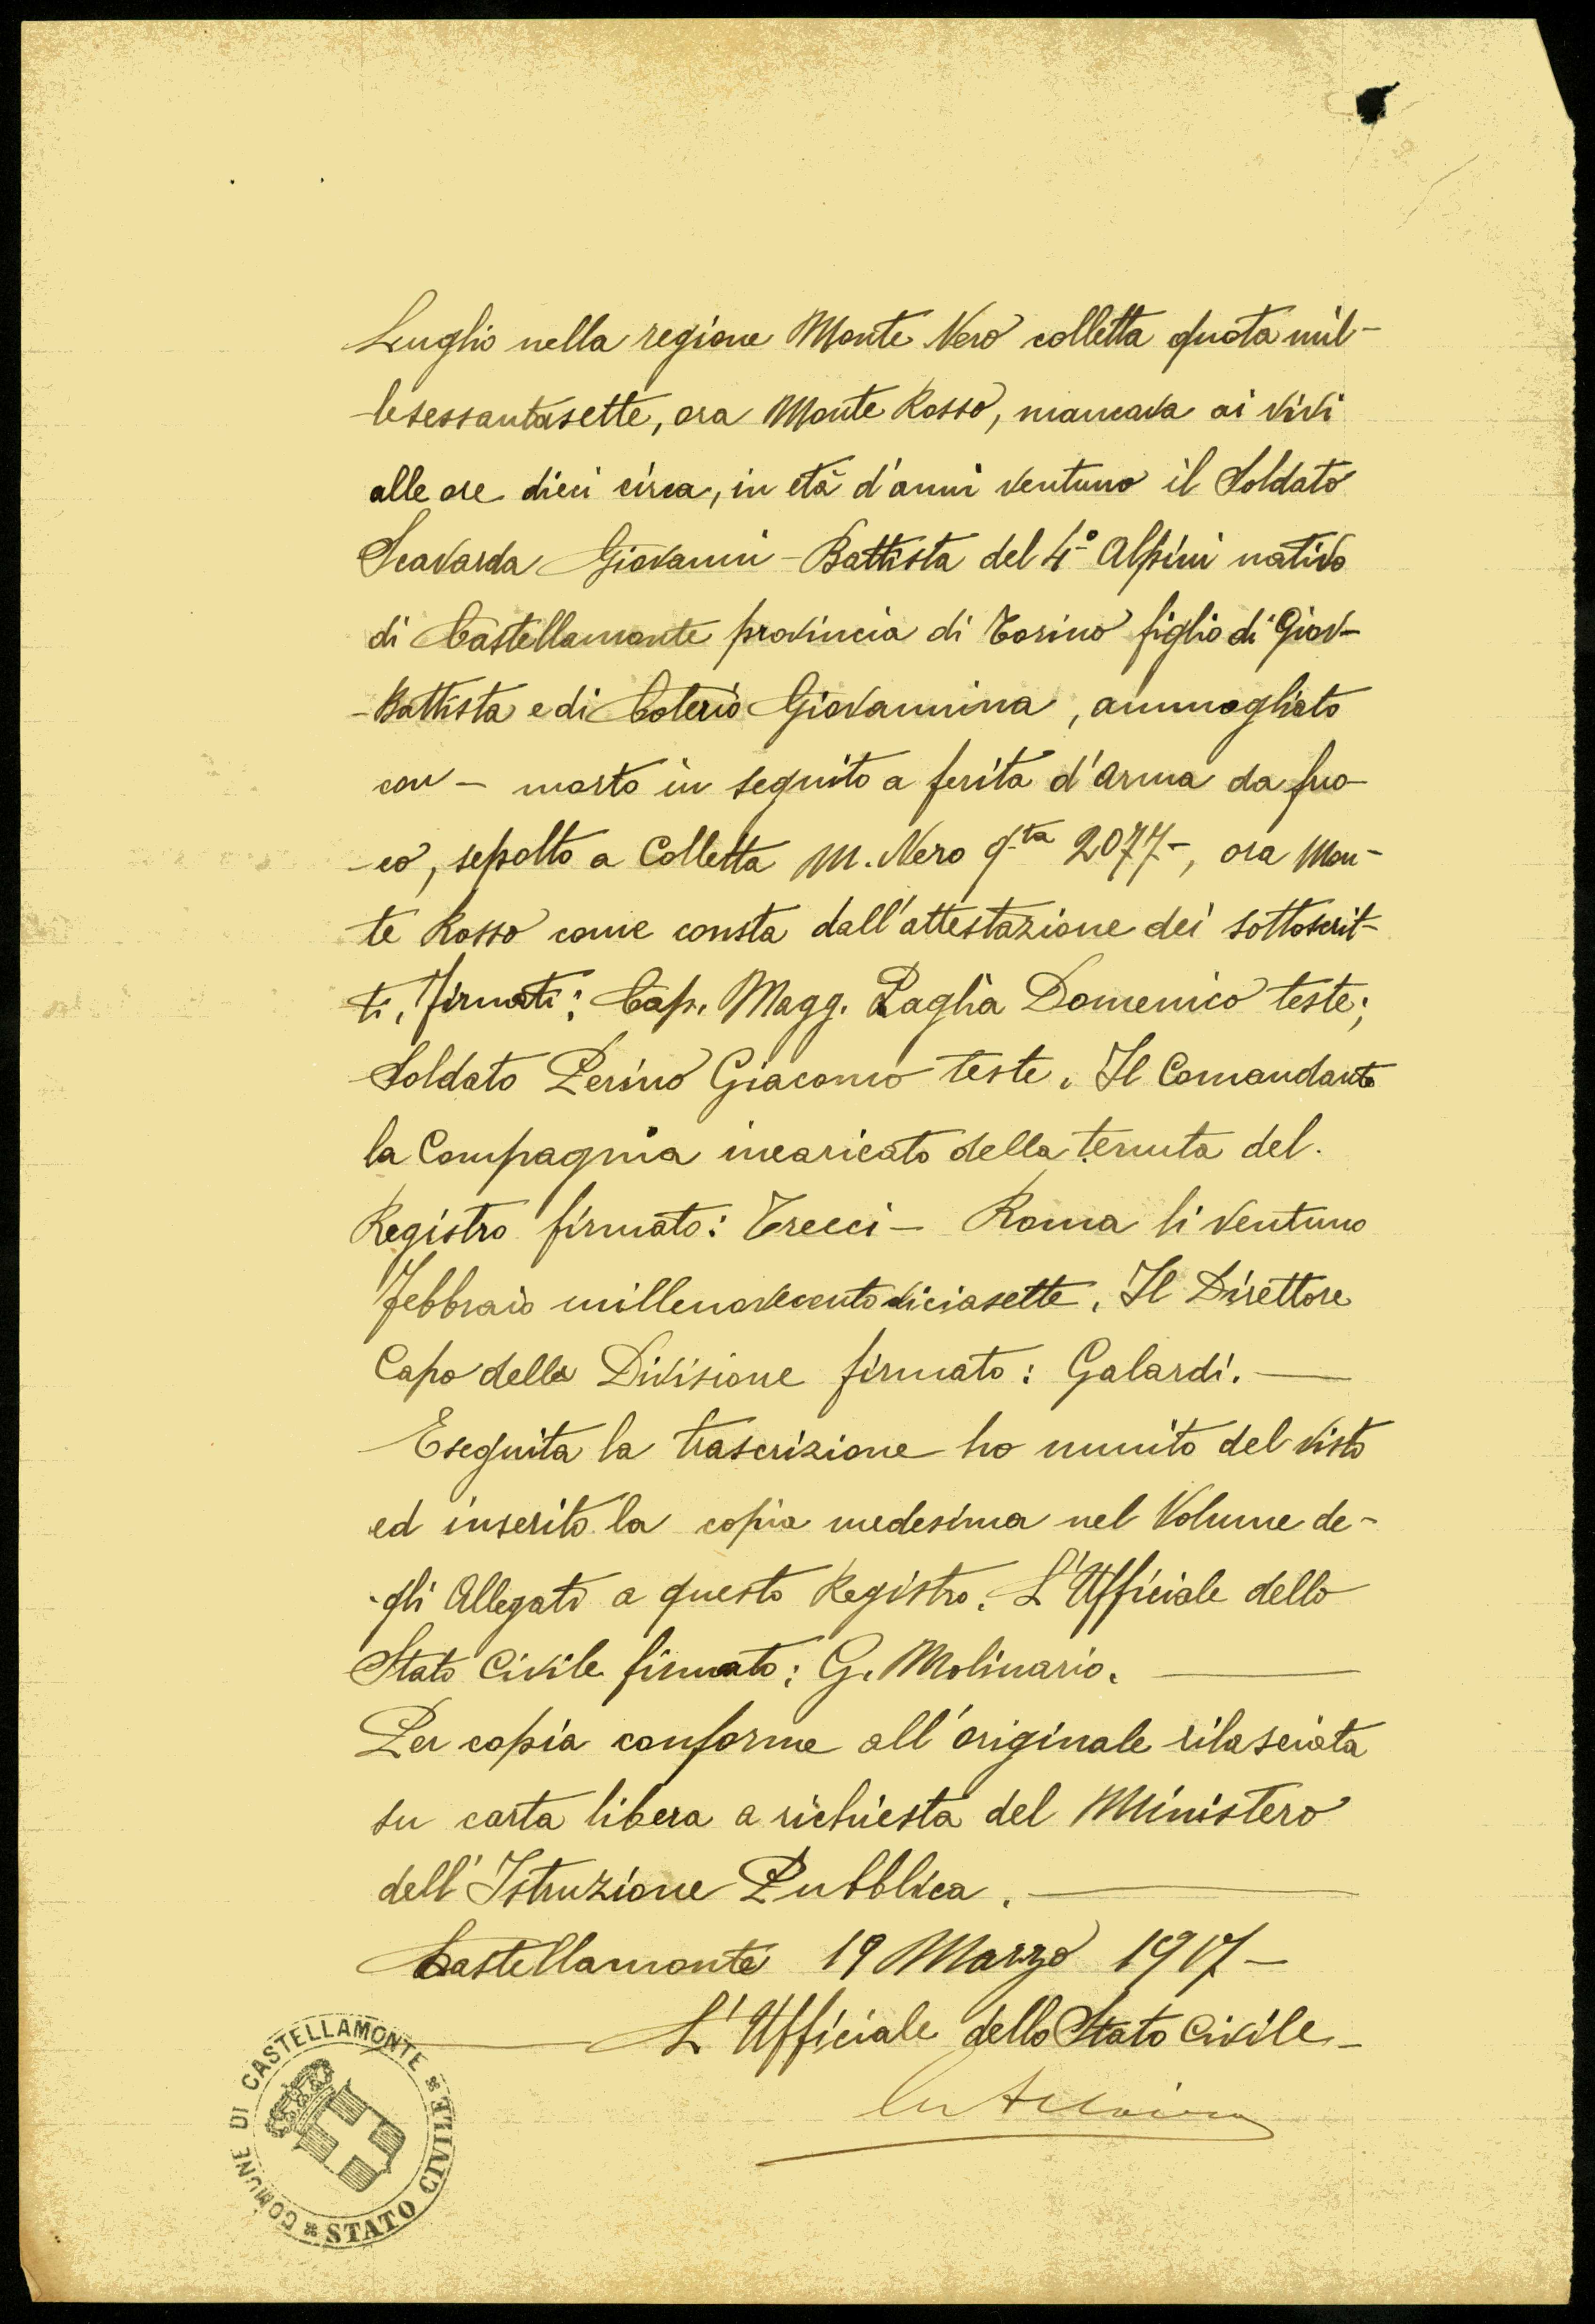 Luglio nella regione Monte Nero colletta quota mil-
lesessantasette, ora Monte Rosso, mancava ai vivi
alle ore dieci circa, in età d'anni ventuno il Soldato
Scavarda Giovanni-Battista del 4º Alpini nativo
di Castellamonte provincia di Torino figlio di Giov-
-Battista e di Coterio Giovannina, ammogliato
con - morto in seguito a ferita d'arma da fuo-
-co, sepolto a Colletta M. Nero q.ta 2077-, ora Mon-
te Rosso come consta dall'attestazione dei sottoscrit-
ti, firmati: Cap. Magg. Paglia Domenico teste;
Soldato Perino Giacomo teste. Il Comandante
la Compagnia incaricato della tenuta del
Registro firmato: Trecci - Roma li ventuno
Febbraio millenovecentodiciasette. Il Direttore
Capo della Divisione firmato: Galardi.
Eseguita la trascrizione ho munito del visto
ed inserito la copia medesima nel Volume de-
-gli Allegati a questo Registro. L'Ufficiale dello
Stato Civile firmato: G. Molinario.
Per copia conforme all'originale rilasciata
su carta libera a richiesta del Ministero
dell'Istruzione Pubblica.
Castellamonte 19 Marzo 1917-
L'Ufficiale dello Stato Civile-
COMUNE DI CASTELLAMONTE * STATO CIVILE *